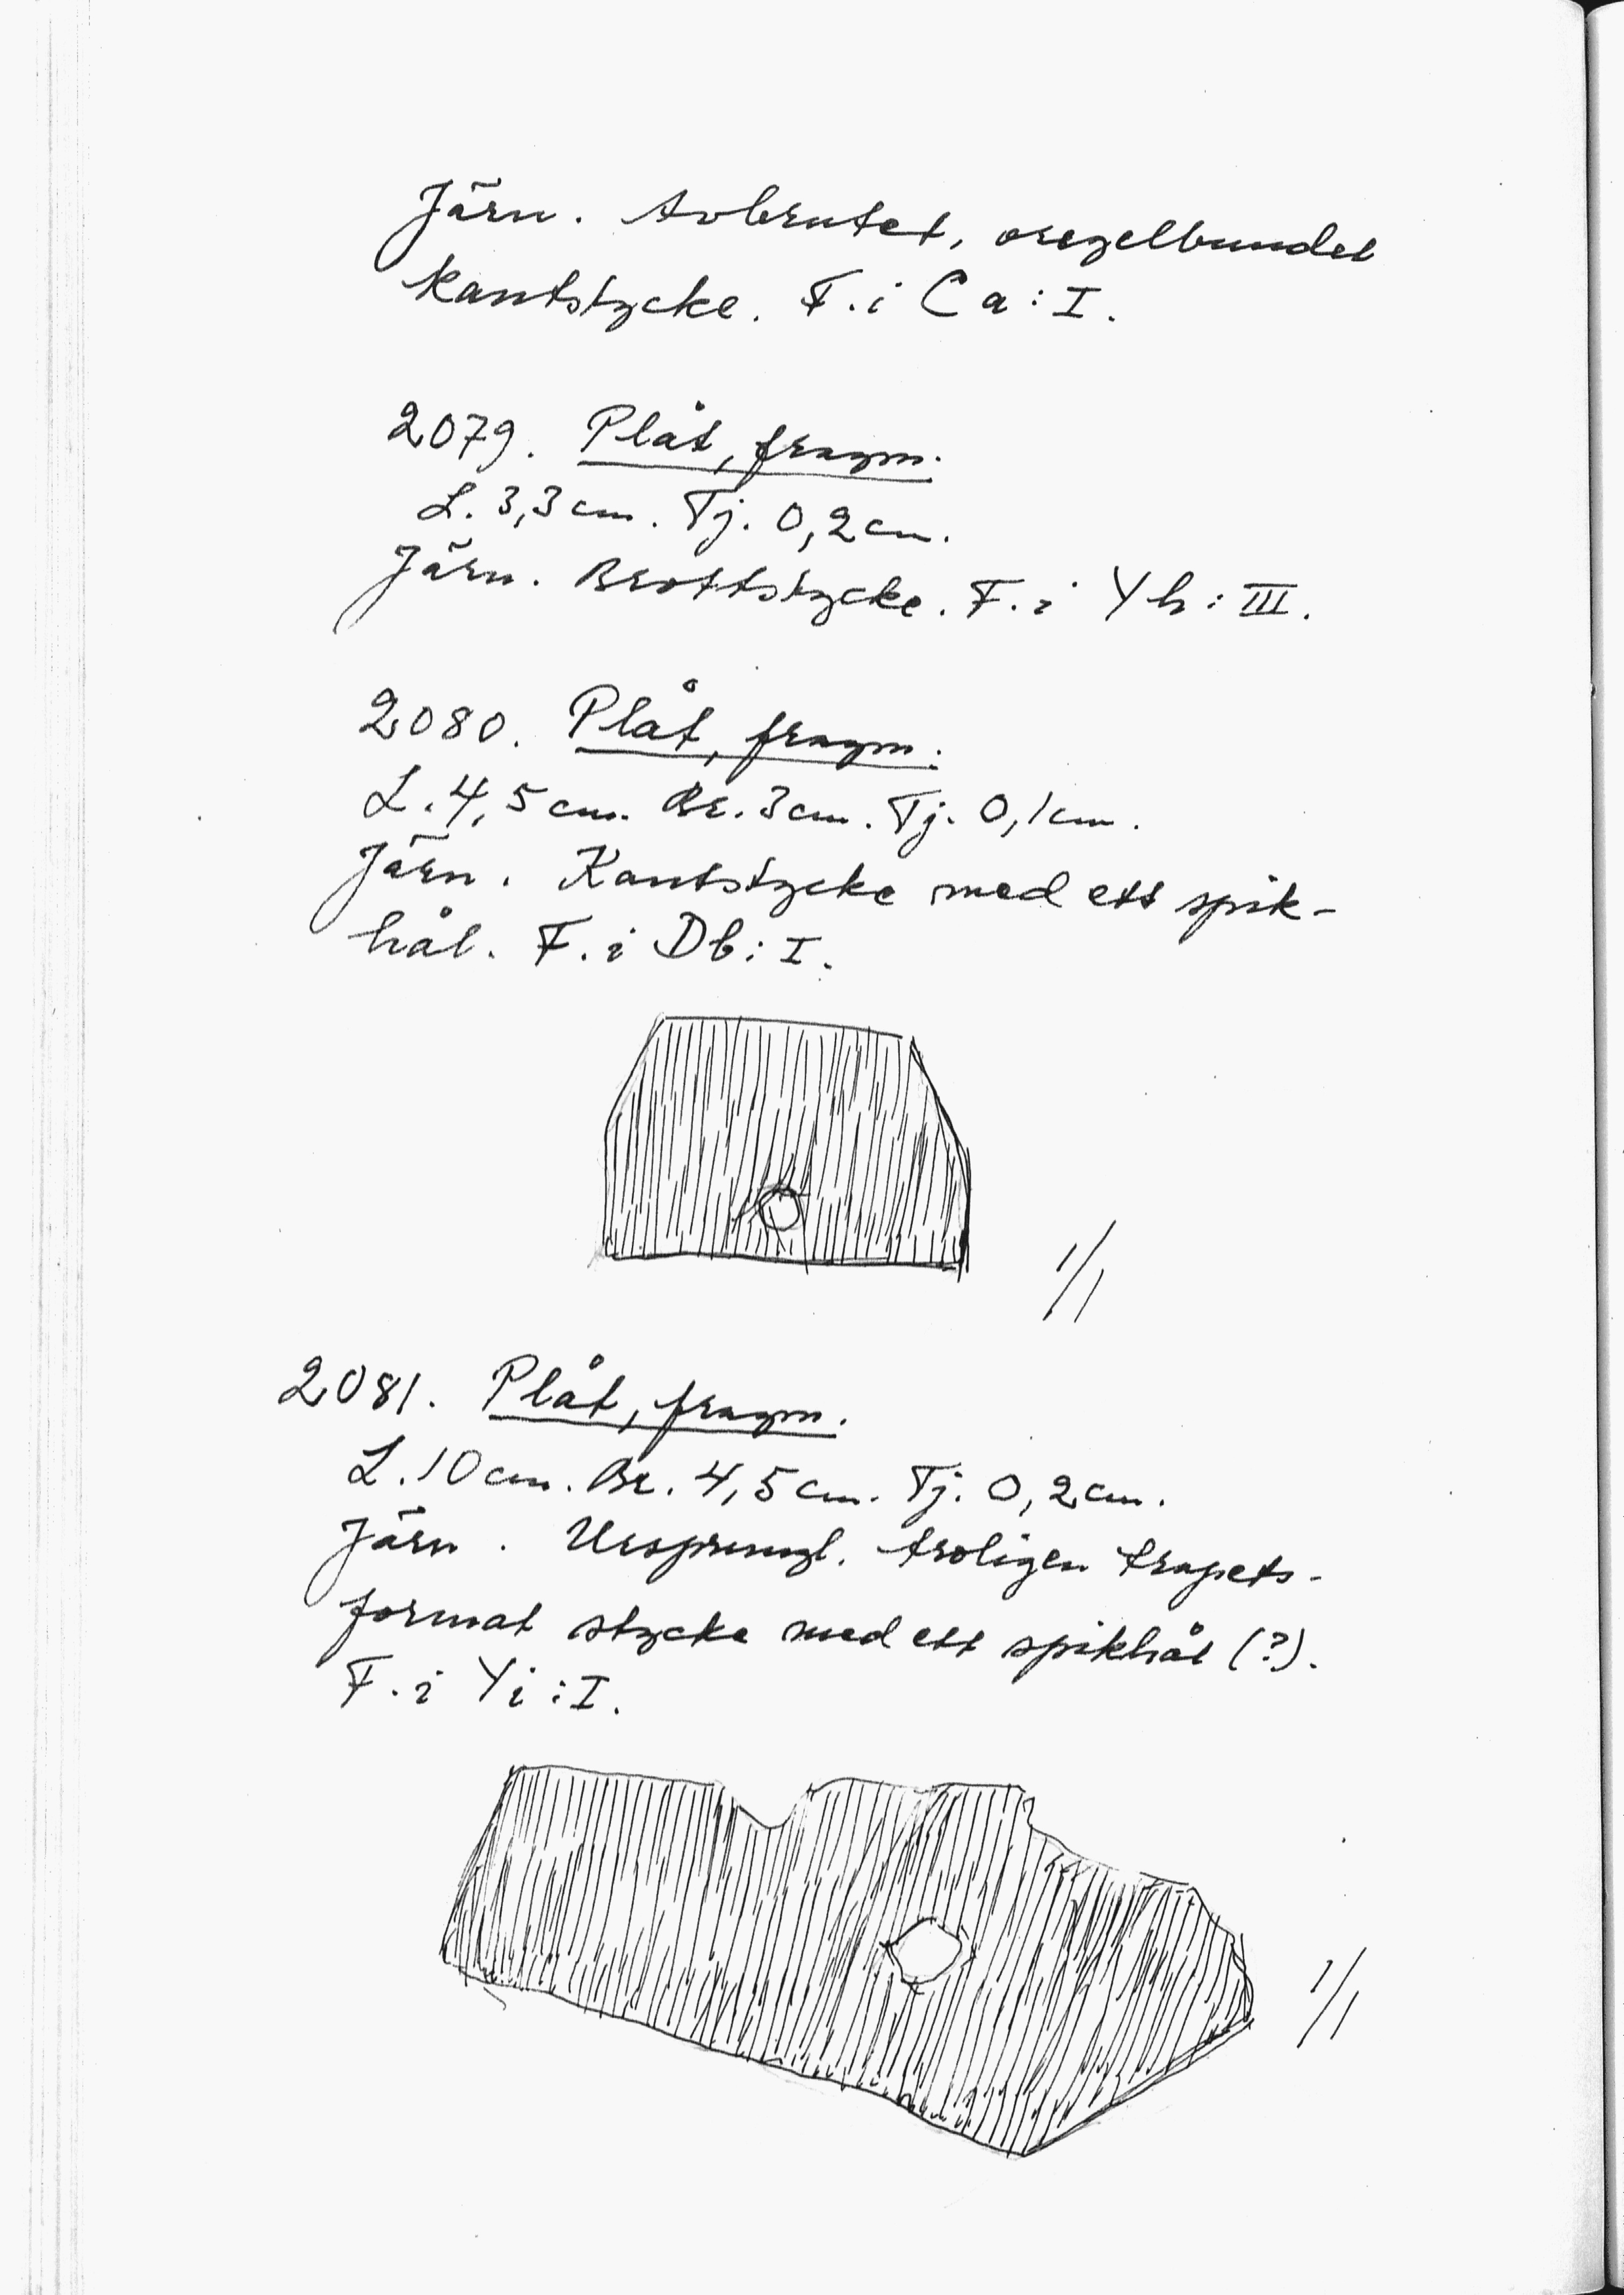 Järn. Avbrutet, oregelbundet
kantstycke. F. i Ca: I.
2079. Plåt, fragm.
L. 3,3 cm. Tj. 0,2 cm.
Järn. Brottstycke. F. i Yh: III.
2080. Plåt, fragm.
L. 4,5 cm. Br. 3 cm. Tj. 0,1 cm.
Järn. Kantstycke med ett spik-
hål. F. i Db: I.
1/1
2081. Plåt, fragm.
L. 10 cm. Br. 4,5 cm. Tj. 0,2 cm.
Järn. Ursprungl. troligen trapets-
format stycke med ett spikhål (?).
F. i Yi: I.
1/1